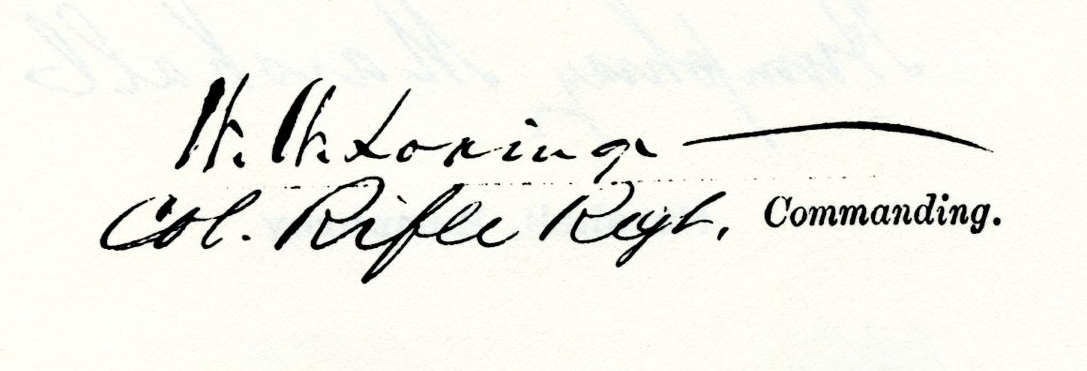 W. W. Loring
Col. Rifle Regt, Commanding.